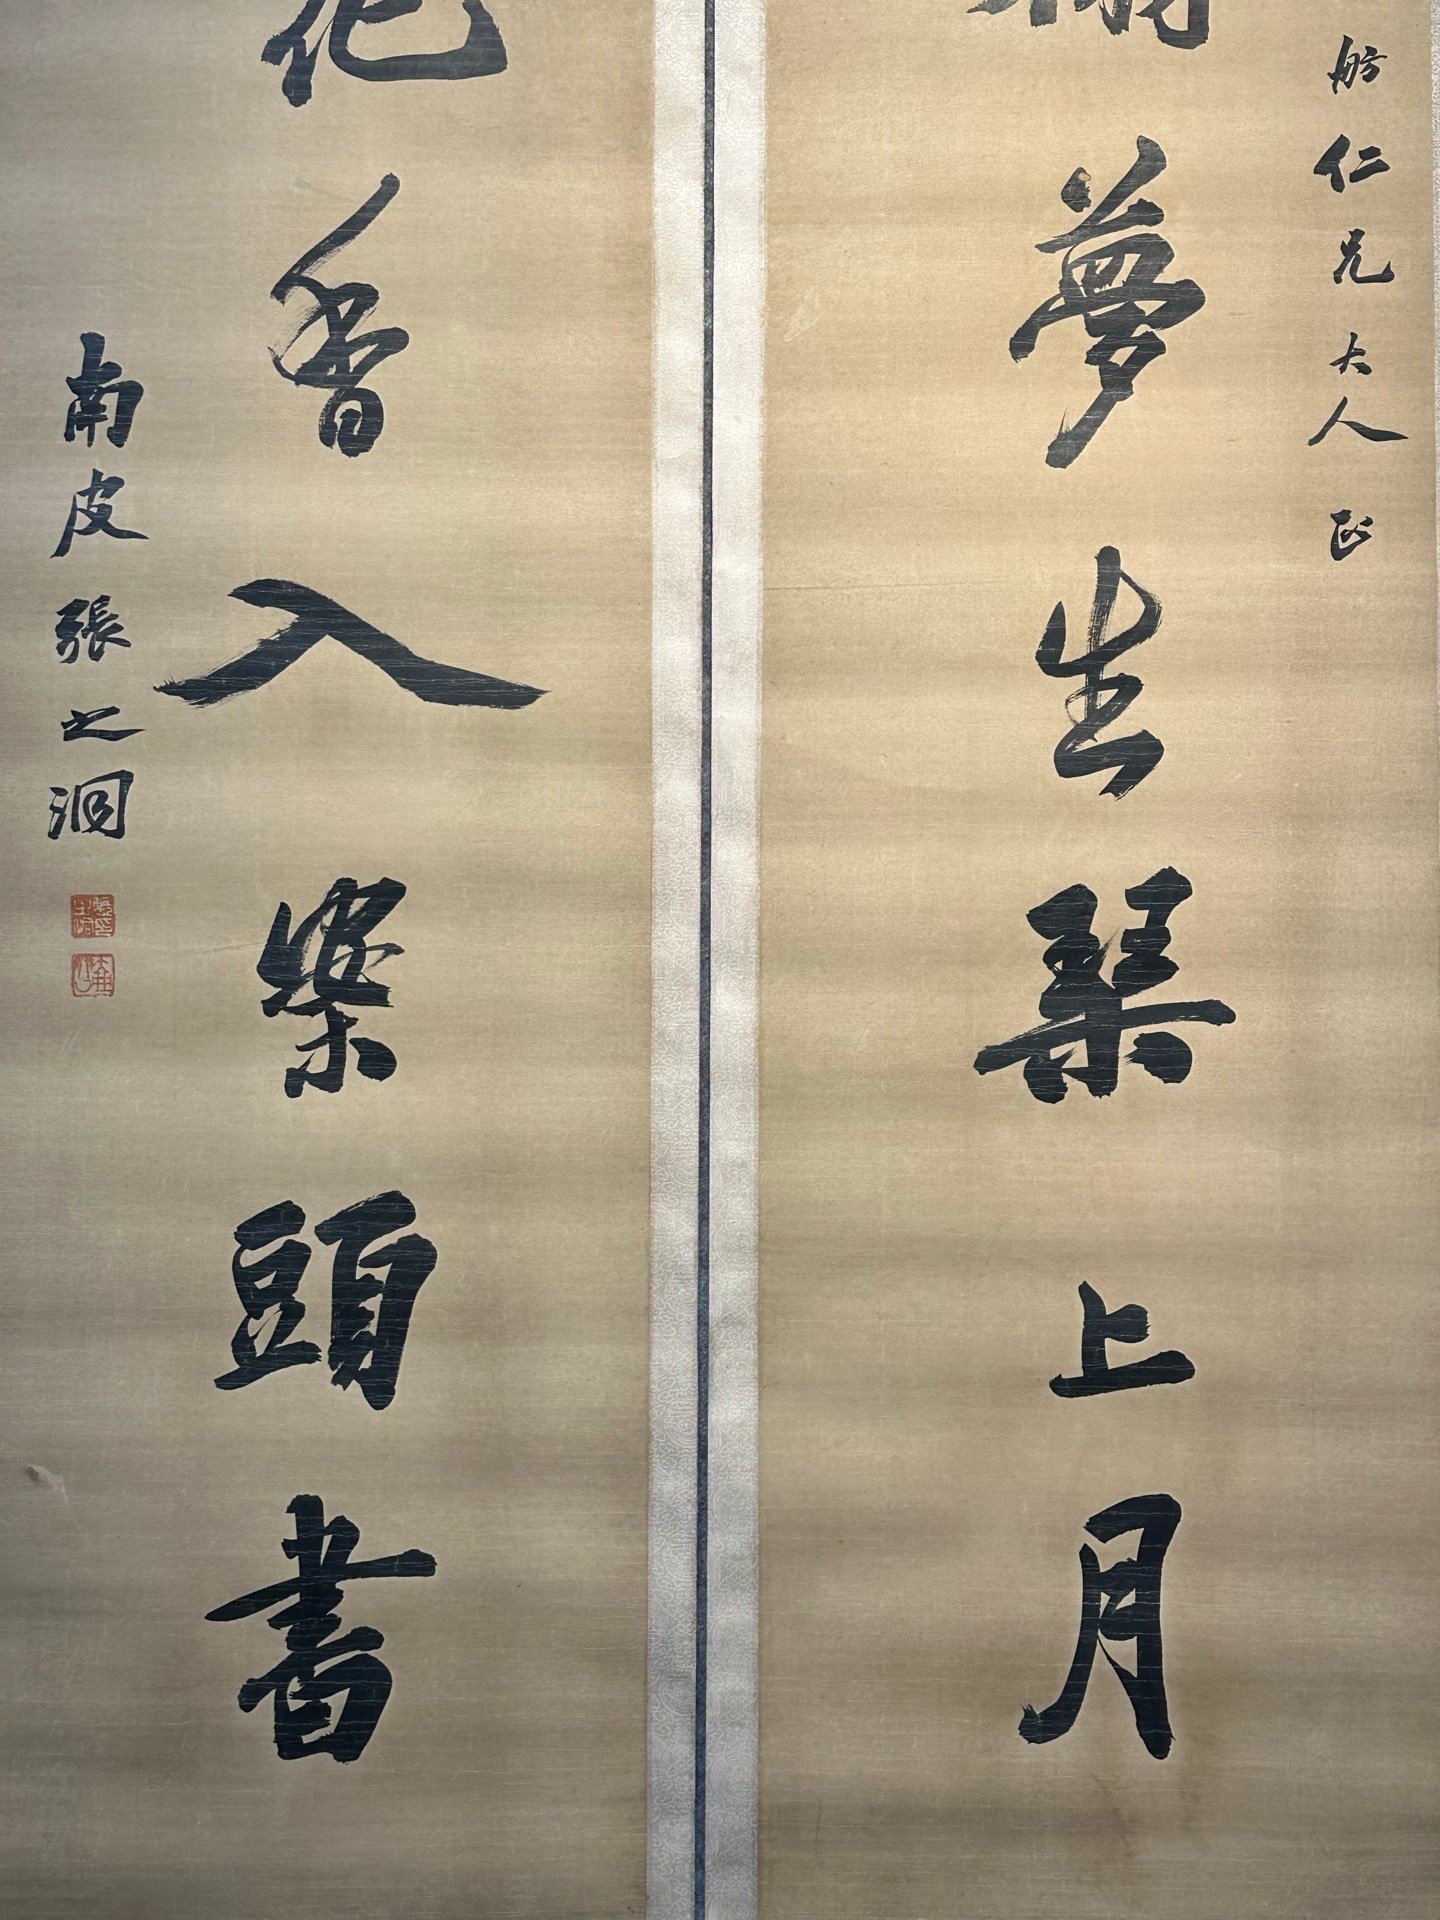 舫仁兄大人正
夢生琴上月
花香入案頭書
南皮張之洞